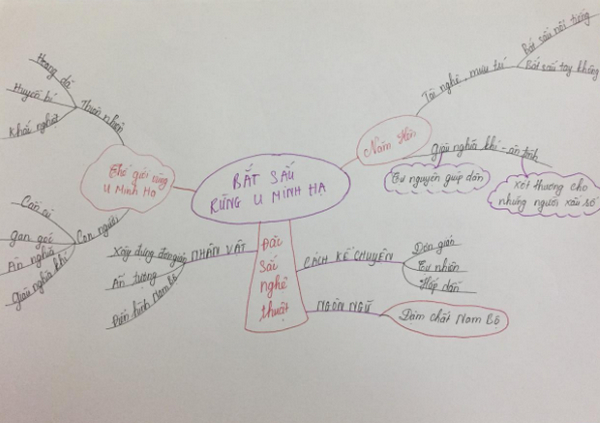 BẮT SẤU
RỪNG U MINH HẠ
Thế giới rừng
U Minh Hạ
Thiên nhiên
Hoang dã
Huyền bí
Khắc nghiệt
Con người
Cần cù
gan góc
Ân nghĩa
Giàu nghĩa khí
Năm Hên
Tài nghệ, mưu trí
Bắt sấu nổi tiếng
Bắt sấu tay không
Giàu nghĩa khí - ân tình
Tự nguyện giúp dân
Xót thương cho
những người xấu số
Đặc
Sắc
nghệ
thuật
NHÂN VẬT
Xây dựng đơn giản
Ấn tượng
Điển hình Nam Bộ
CÁCH KỂ CHUYỆN
Đơn giản
Tự nhiên
Hấp dẫn
NGÔN NGỮ
Đậm chất Nam Bộ